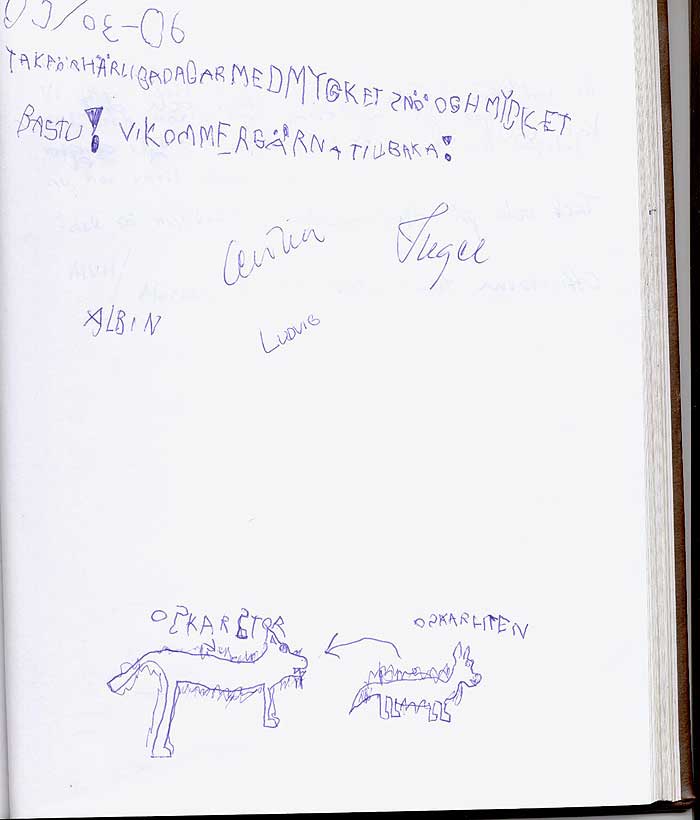 03/03-06
TAKFÖRHÄRLIGADAGARMEDMYGKET SNÖ OGH MYCKET
BASTU! VIKOMMERGÄRNA TILLBAKA!
Cecilia Inger
ALBIN LUDVIG
OSKARSTOR OSKARLITEN